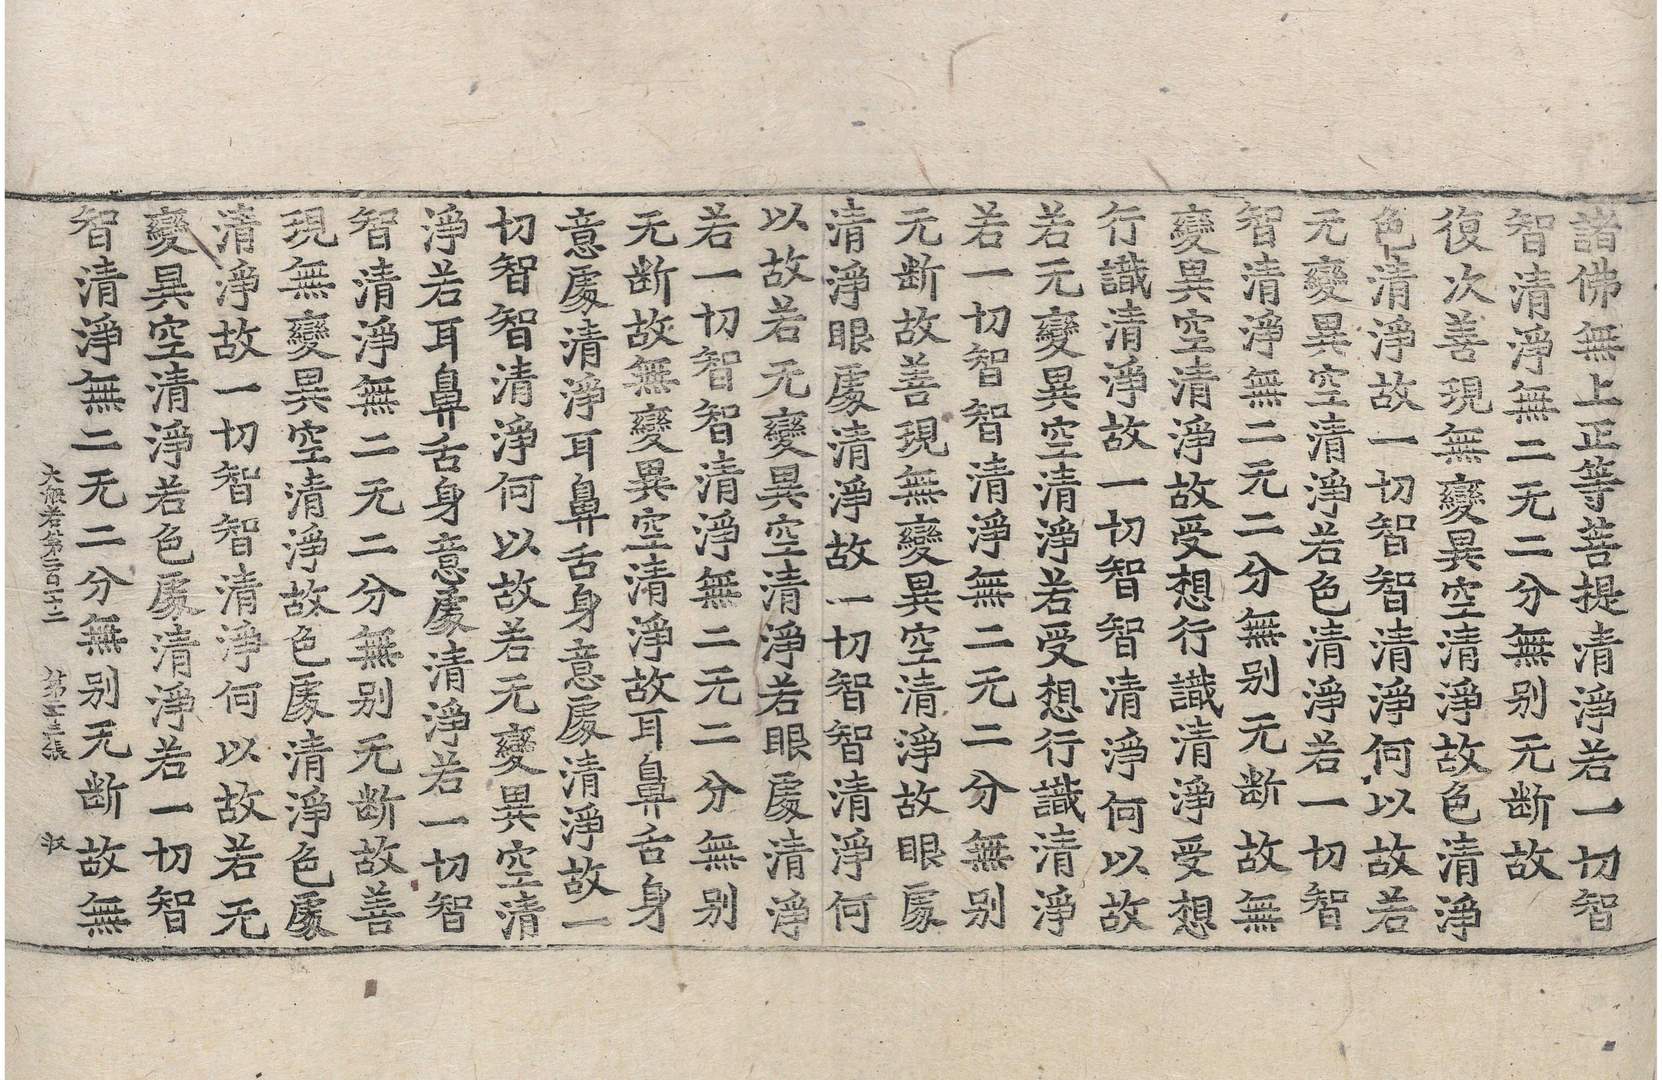 諸佛無上正等菩提清淨若一切智
智清淨無二无二分無别无断故
復次善現無變異空清淨故色清淨
色清淨故一切智智清淨何以故若
无變異空清淨若色清淨若一切智
智清淨無二无二分無别无断故無
變異空清淨故受想行識清淨受想
行識清淨故一切智智清淨何以故
若无變異空清淨若受想行識清淨
若一切智智清淨無二无二分無别
无断故善現無變異空清淨故眼處
清淨眼處清淨故一切智智清淨何
以故若无變異空清淨若眼處清淨
若一切智智清淨無二无二分無别
无断故無變異空清淨故耳鼻舌身
意處清淨耳鼻舌身意處清淨故一
切智智清淨何以故若无變異空清
淨若耳鼻舌身意處清淨若一切智
智清淨無二无二分無别无断故善
現無變異空清淨故色處清淨色處
清淨故一切智智清淨何以故若无
變異空清淨若色處清淨若一切智
智清淨無二无二分無别无断故無
大般若第二百二十二 第二十三張